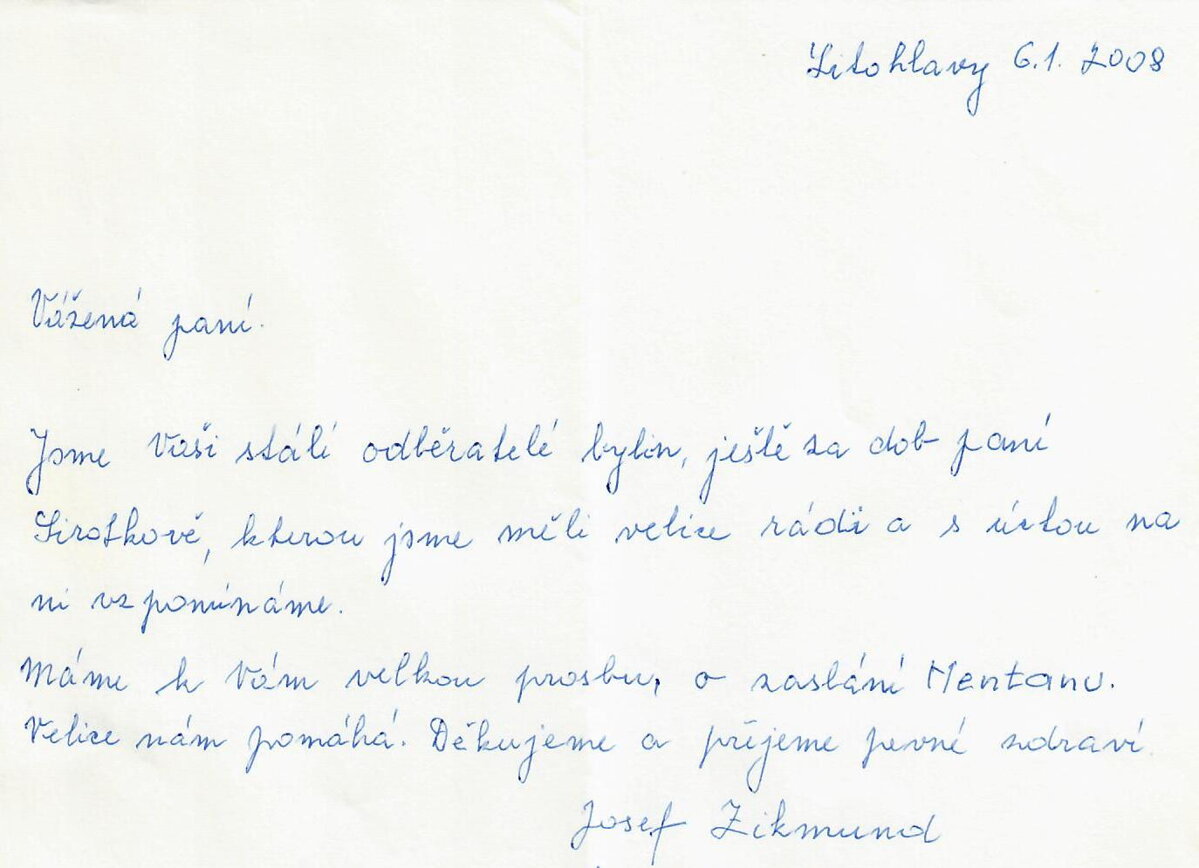 Litohlavy 6.1. 2008
Vážená paní.
Jsme Vaši stálí odběratelé bylin, ještě za dob paní
Sirotkové, kterou jsme měli velice rádi a s úctou na
ni vzpomínáme.
Máme k Vám velkou prosbu, o zaslání Mentanu.
Velice nám pomáhá. Děkujeme a přejeme pevné zdraví
Josef Zikmund